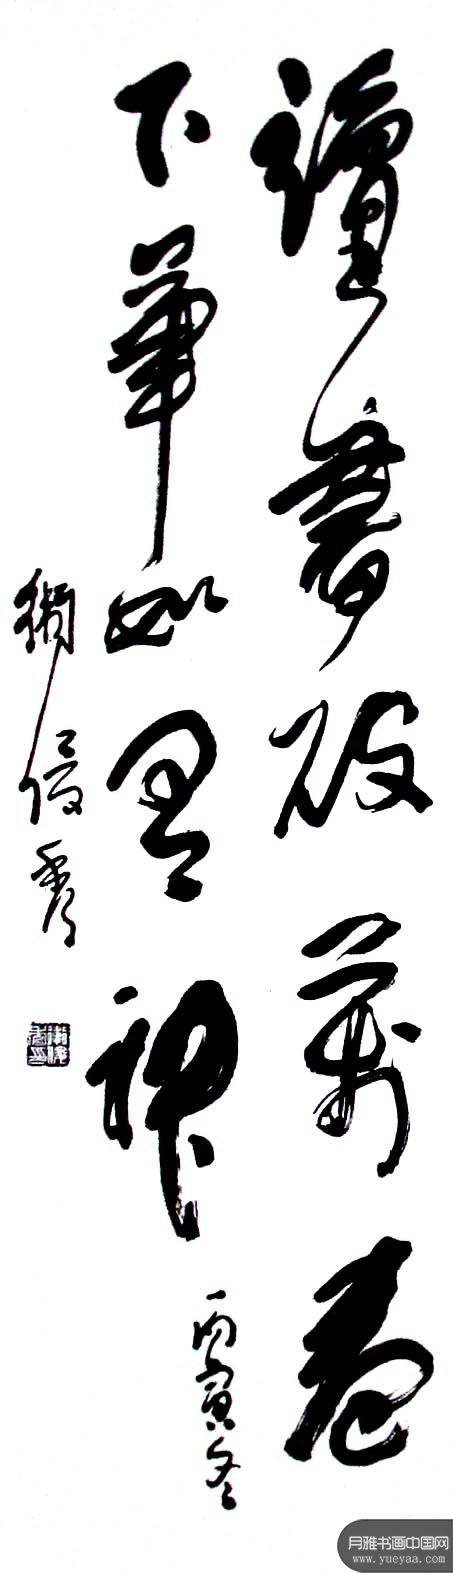 讀書破萬卷
下筆如有神
丙寅冬
衛俊秀
月雅书画中国网
www.yueyaa.com